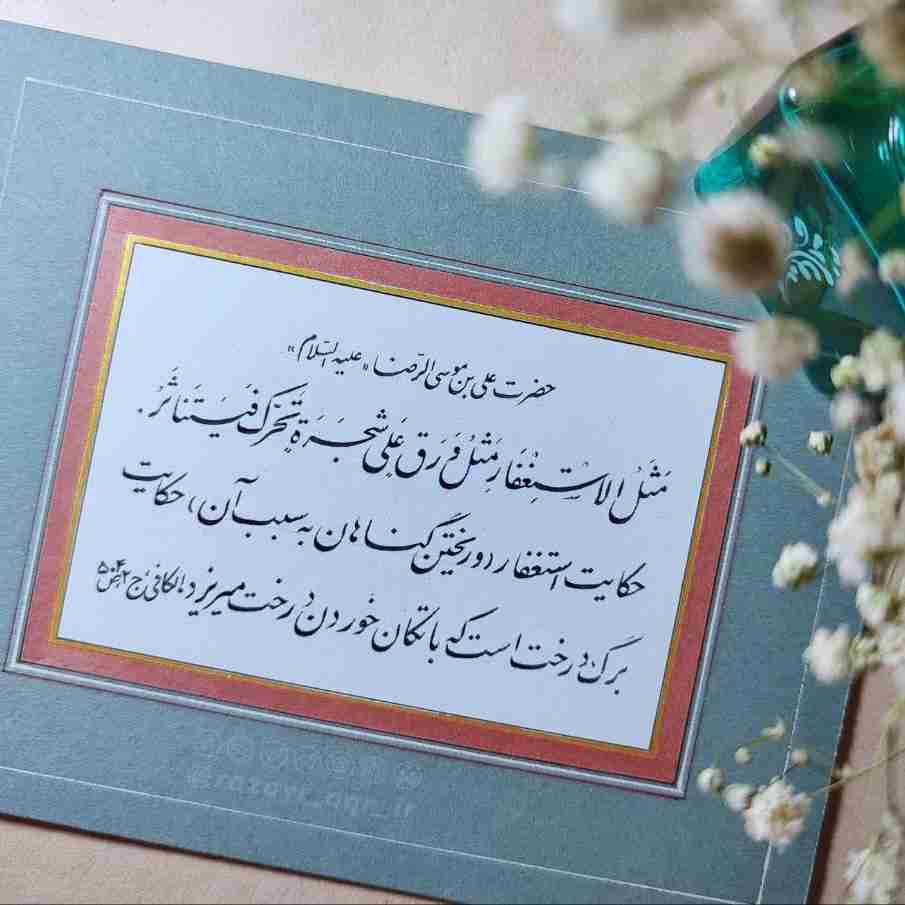 حضرت علی بن موسی الرّضا «علیه السّلام»
مَثَلُ الاِسْتِغْفَارِ مَثَلُ وَرَقٍ عَلَى شَجَرَةٍ تَحَرَّكُ فَيَتَناثَرُ.
حکایت استغفار (و ریختن گناهان به سبب آن) حکایت
برگ درخت است که با تکان خوردن درخت میریزد. الکافی، ج۲، ص۵۰۴
@razavi_aqr_ir